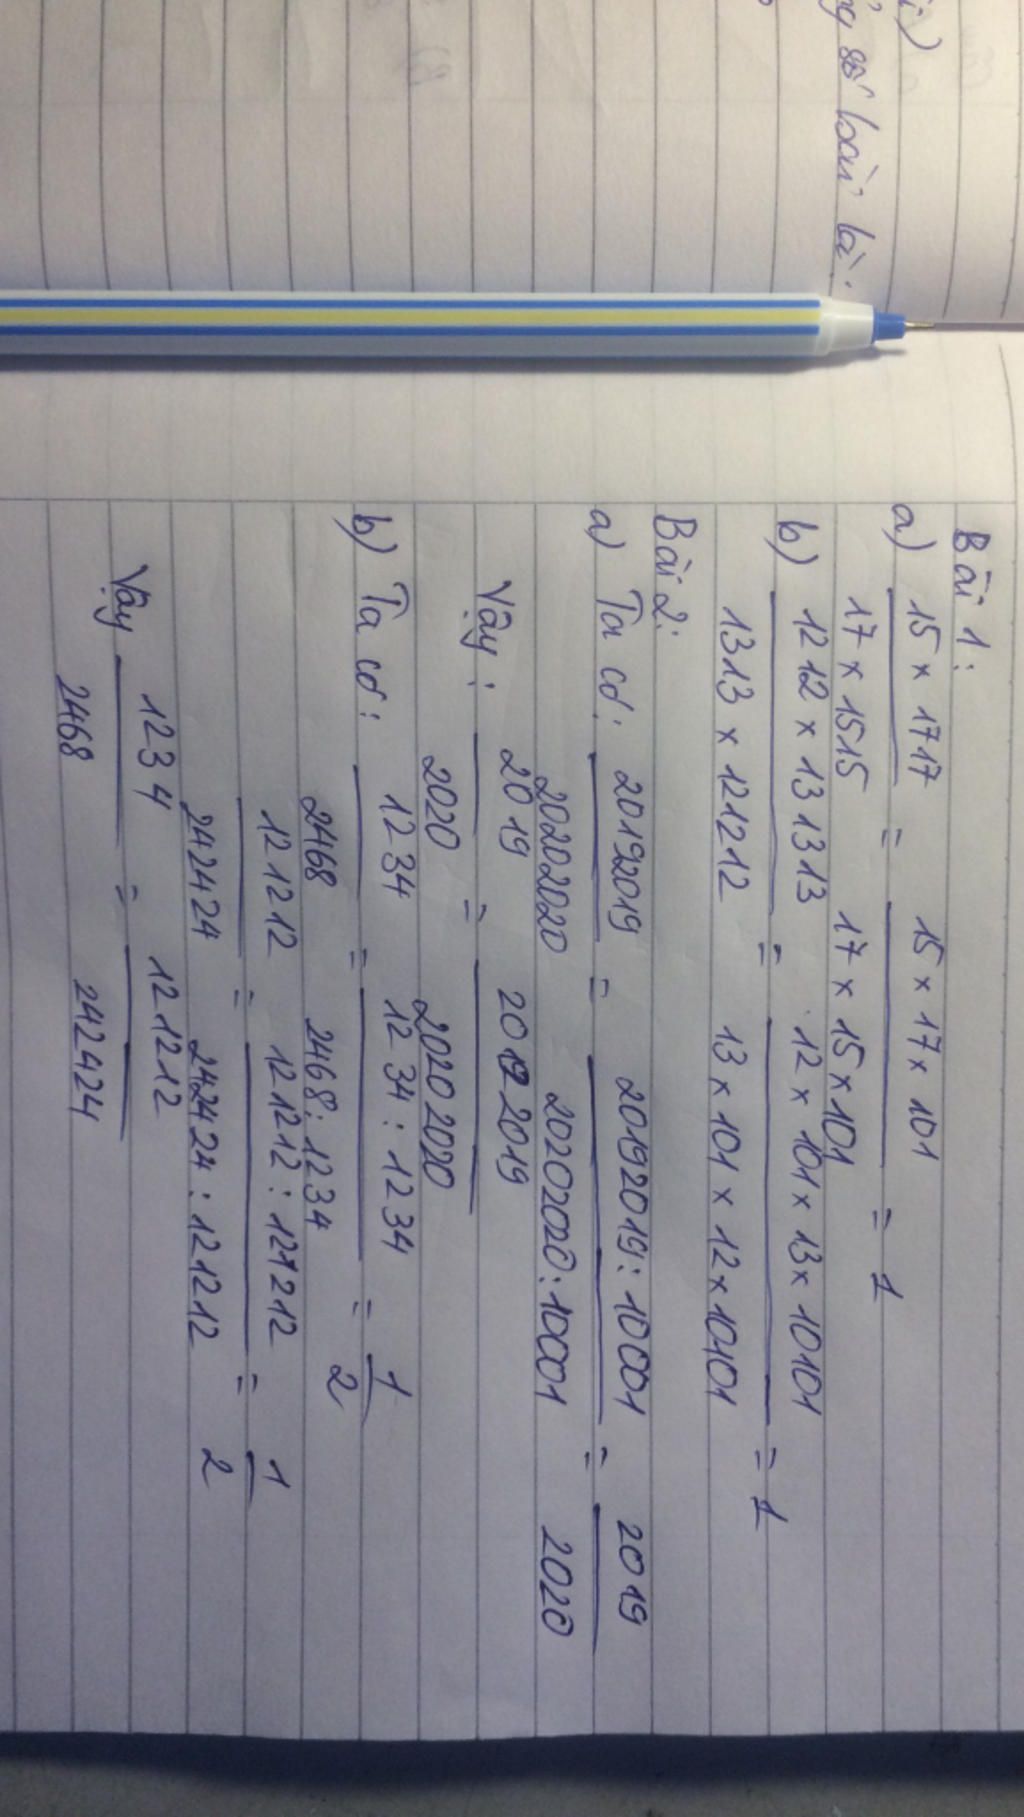 số bài là:
Bài 1:
a) 15 × 1717 / 17 × 1515 = 15 × 17 × 101 / 17 × 15 × 101 = 1
b) 1212 × 131313 / 1313 × 121212 = 12 × 101 × 13 × 10101 / 13 × 101 × 12 × 10101 = 1
Bài 2:
a) Ta có: 20192019 / 20202020 = 20192019 : 10001 / 20202020 : 10001 = 2019 / 2020
Vậy: 2019 / 2020 = 20192019 / 20202020
b) Ta có: 1234 / 2468 = 1234 : 1234 / 2468 : 1234 = 1 / 2
121212 / 242424 = 121212 : 121212 / 242424 : 121212 = 1 / 2
Vậy 1234 / 2468 = 121212 / 242424